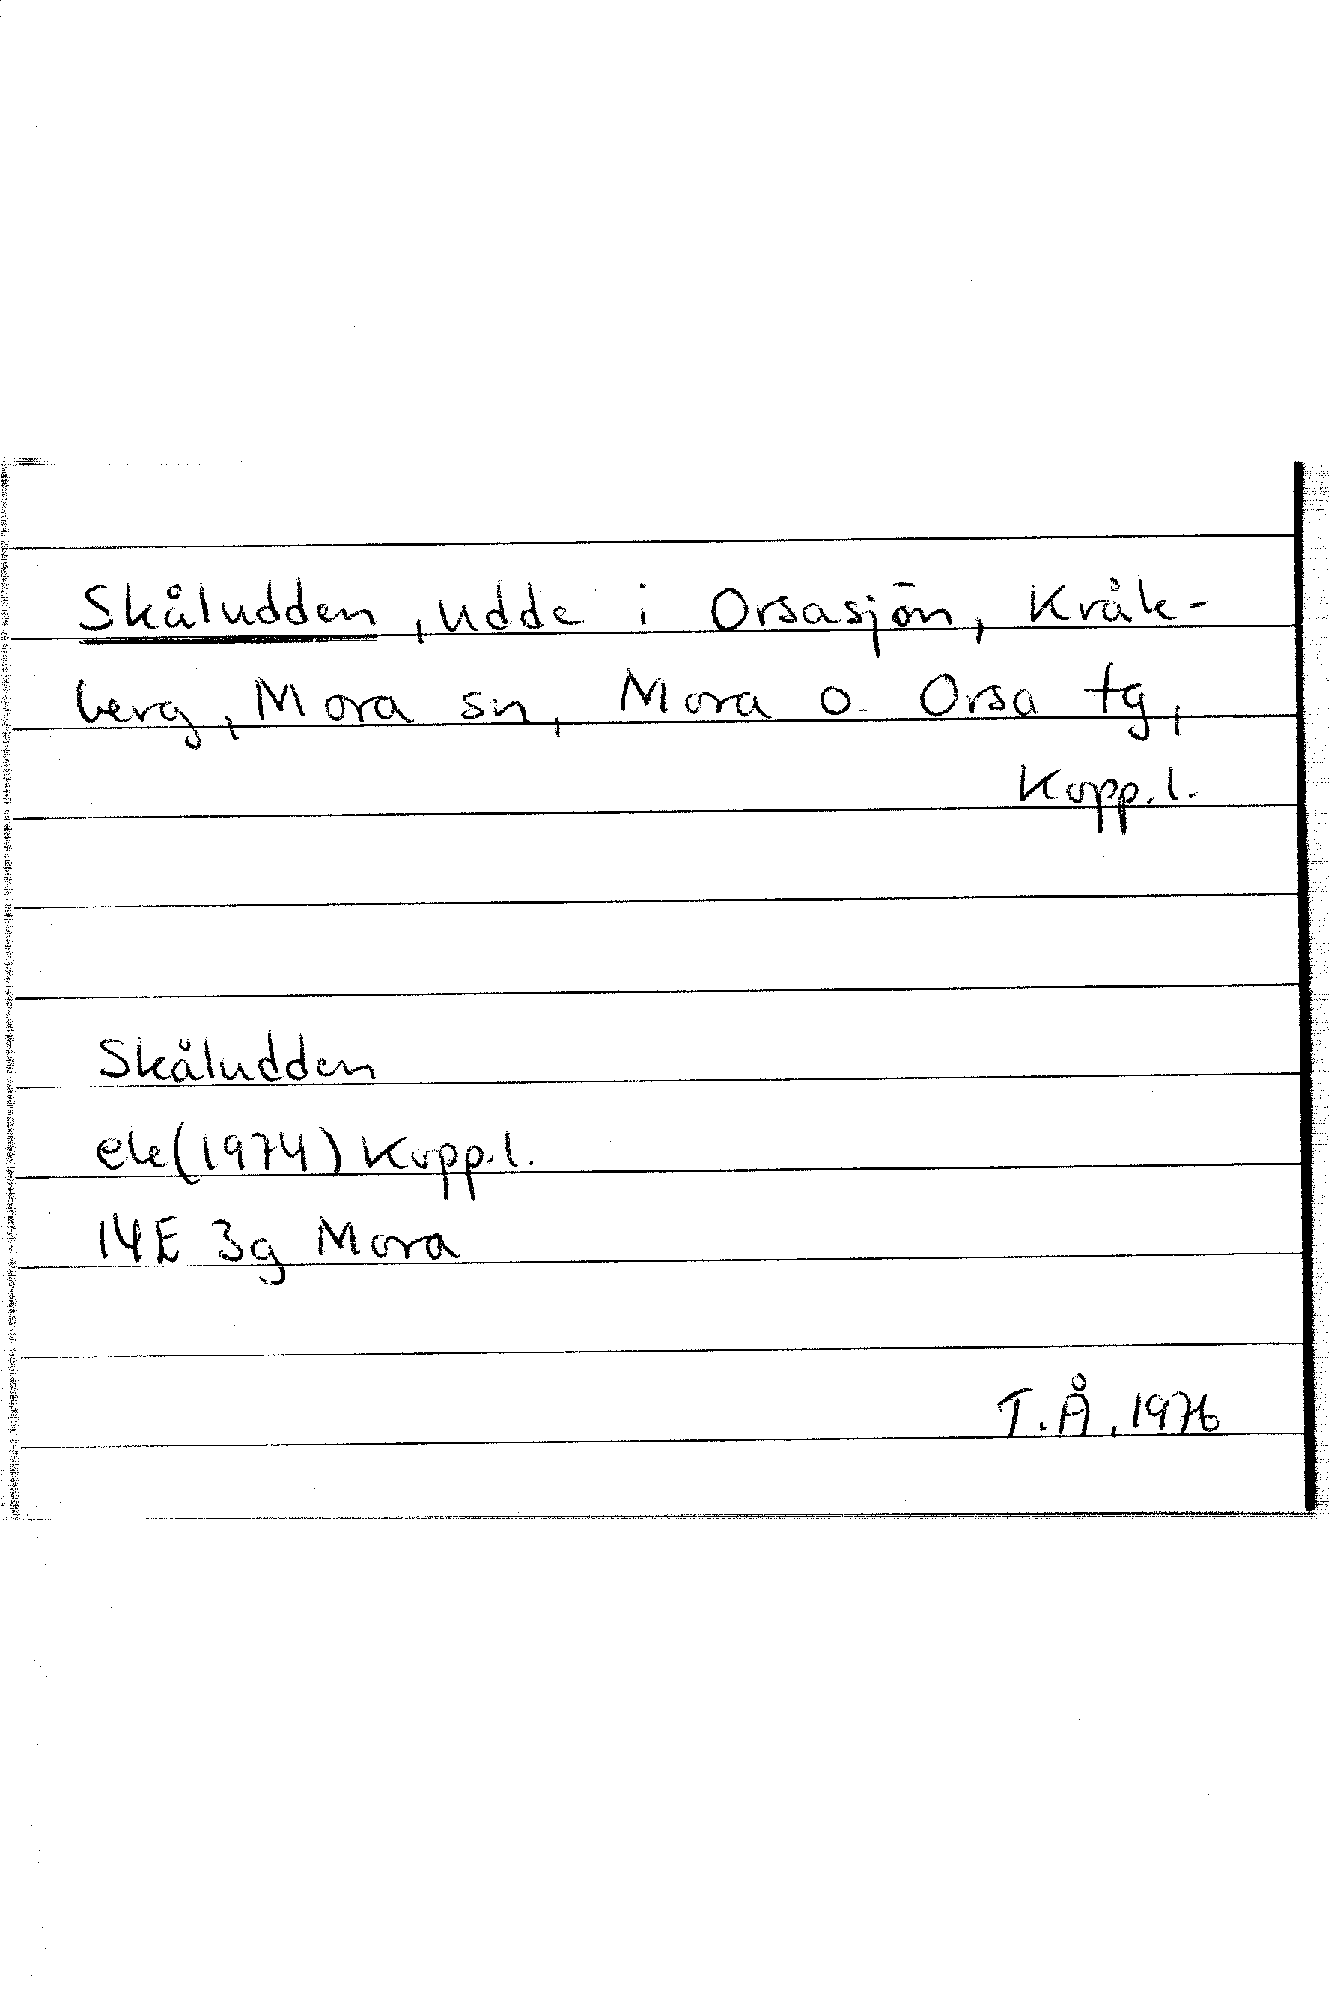 Skåludden, udde i Orsasjön, Kråk-
berg, Mora sn, Mora o. Orsa tg,
Kopp.l.
Skåludden
ek(1974) Kopp.l.
14E 3g Mora
T.Å. 1976